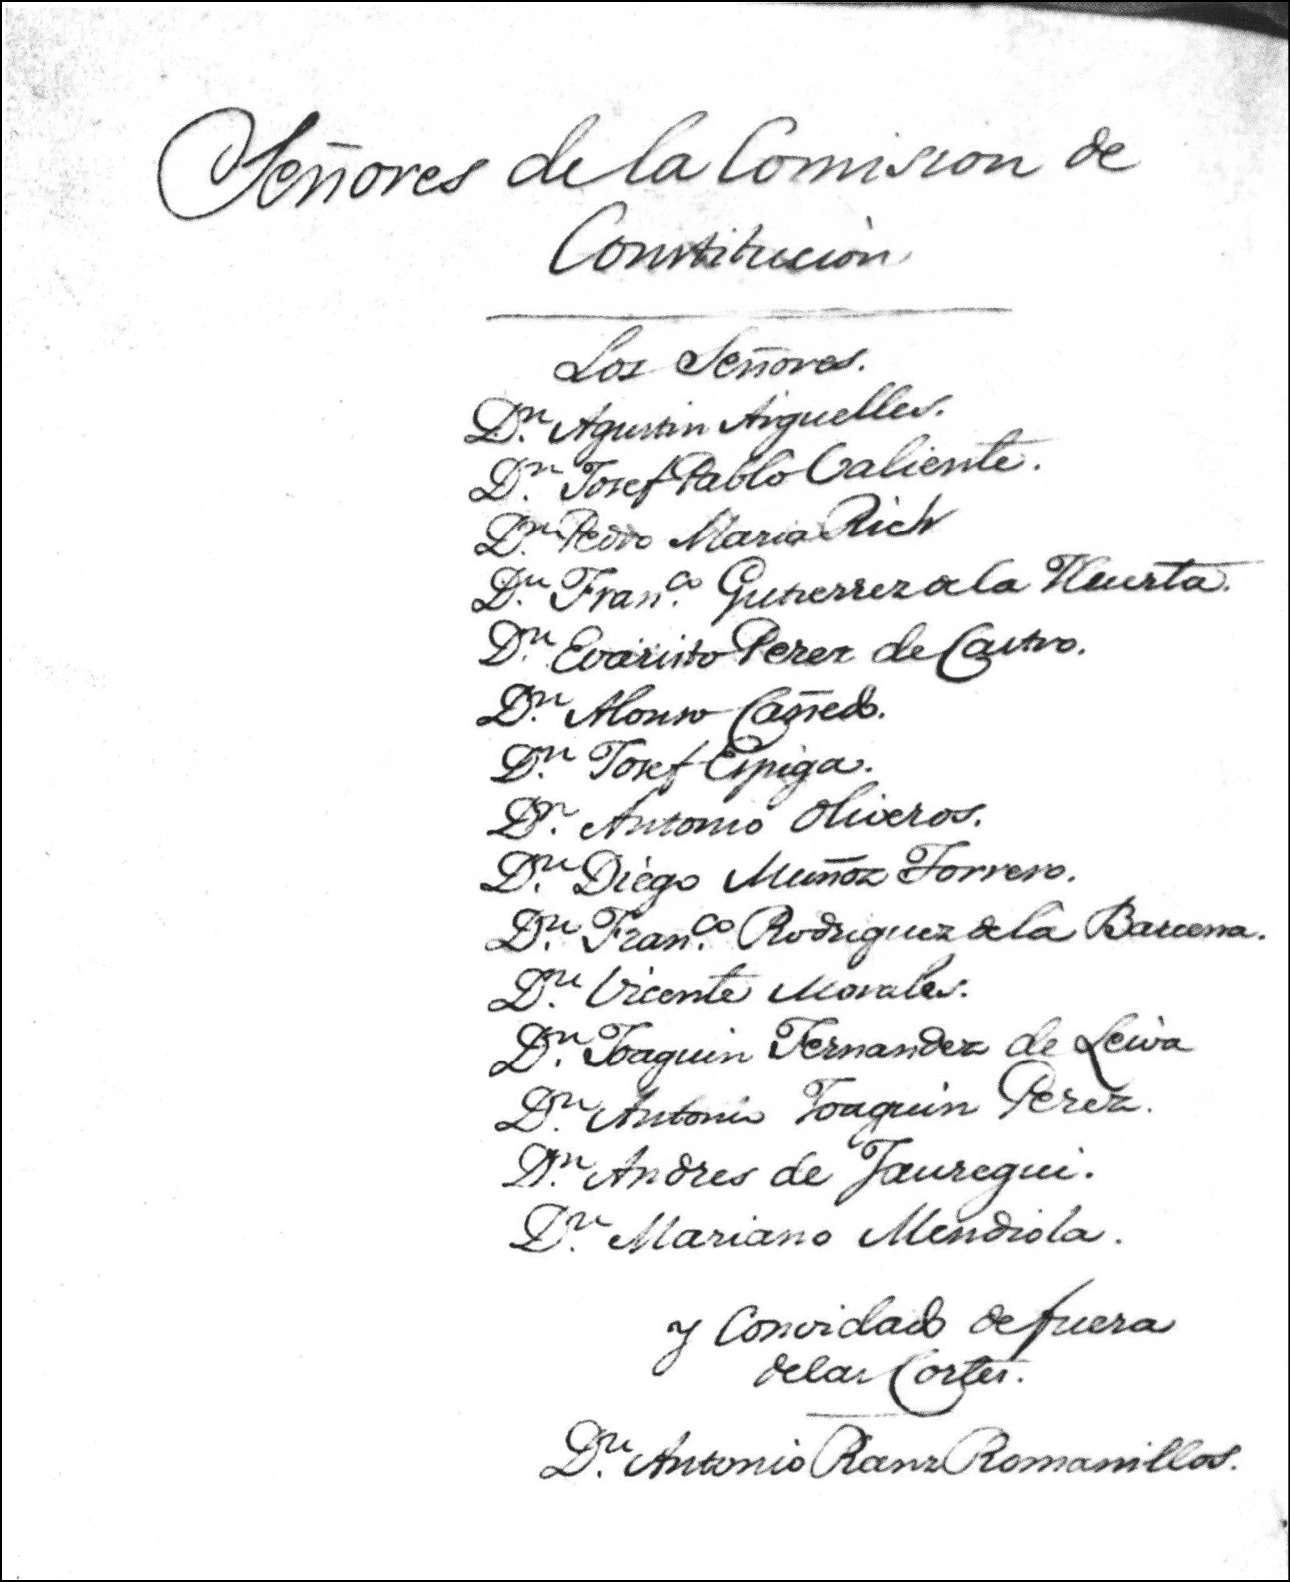 Señores de la Comision de
Constitución
Los Señores.
Dn. Agustin Arguelles.
Dn. Josef Pablo Valiente.
Dn. Pedro Maria Rich
Dn. Franco. Gutierrez de la Huerta.
Dn. Evaristo Perez de Castro.
Dn. Alonso Cañedo.
Dn. Josef Espiga.
Dn. Antonio Oliveros.
Dn. Diego Muñoz Torrero.
Dn. Franco. Rodriguez de la Barcena.
Dn. Vicente Morales.
Dn. Joaquin Fernandez de Leiva
Dn. Antonio Joaquin Perez.
Dn. Andres de Jauregui.
Dn. Mariano Mendiola.
y Convidado de fuera
de las Cortes.
Dn. Antonio Ranz Romanillos.